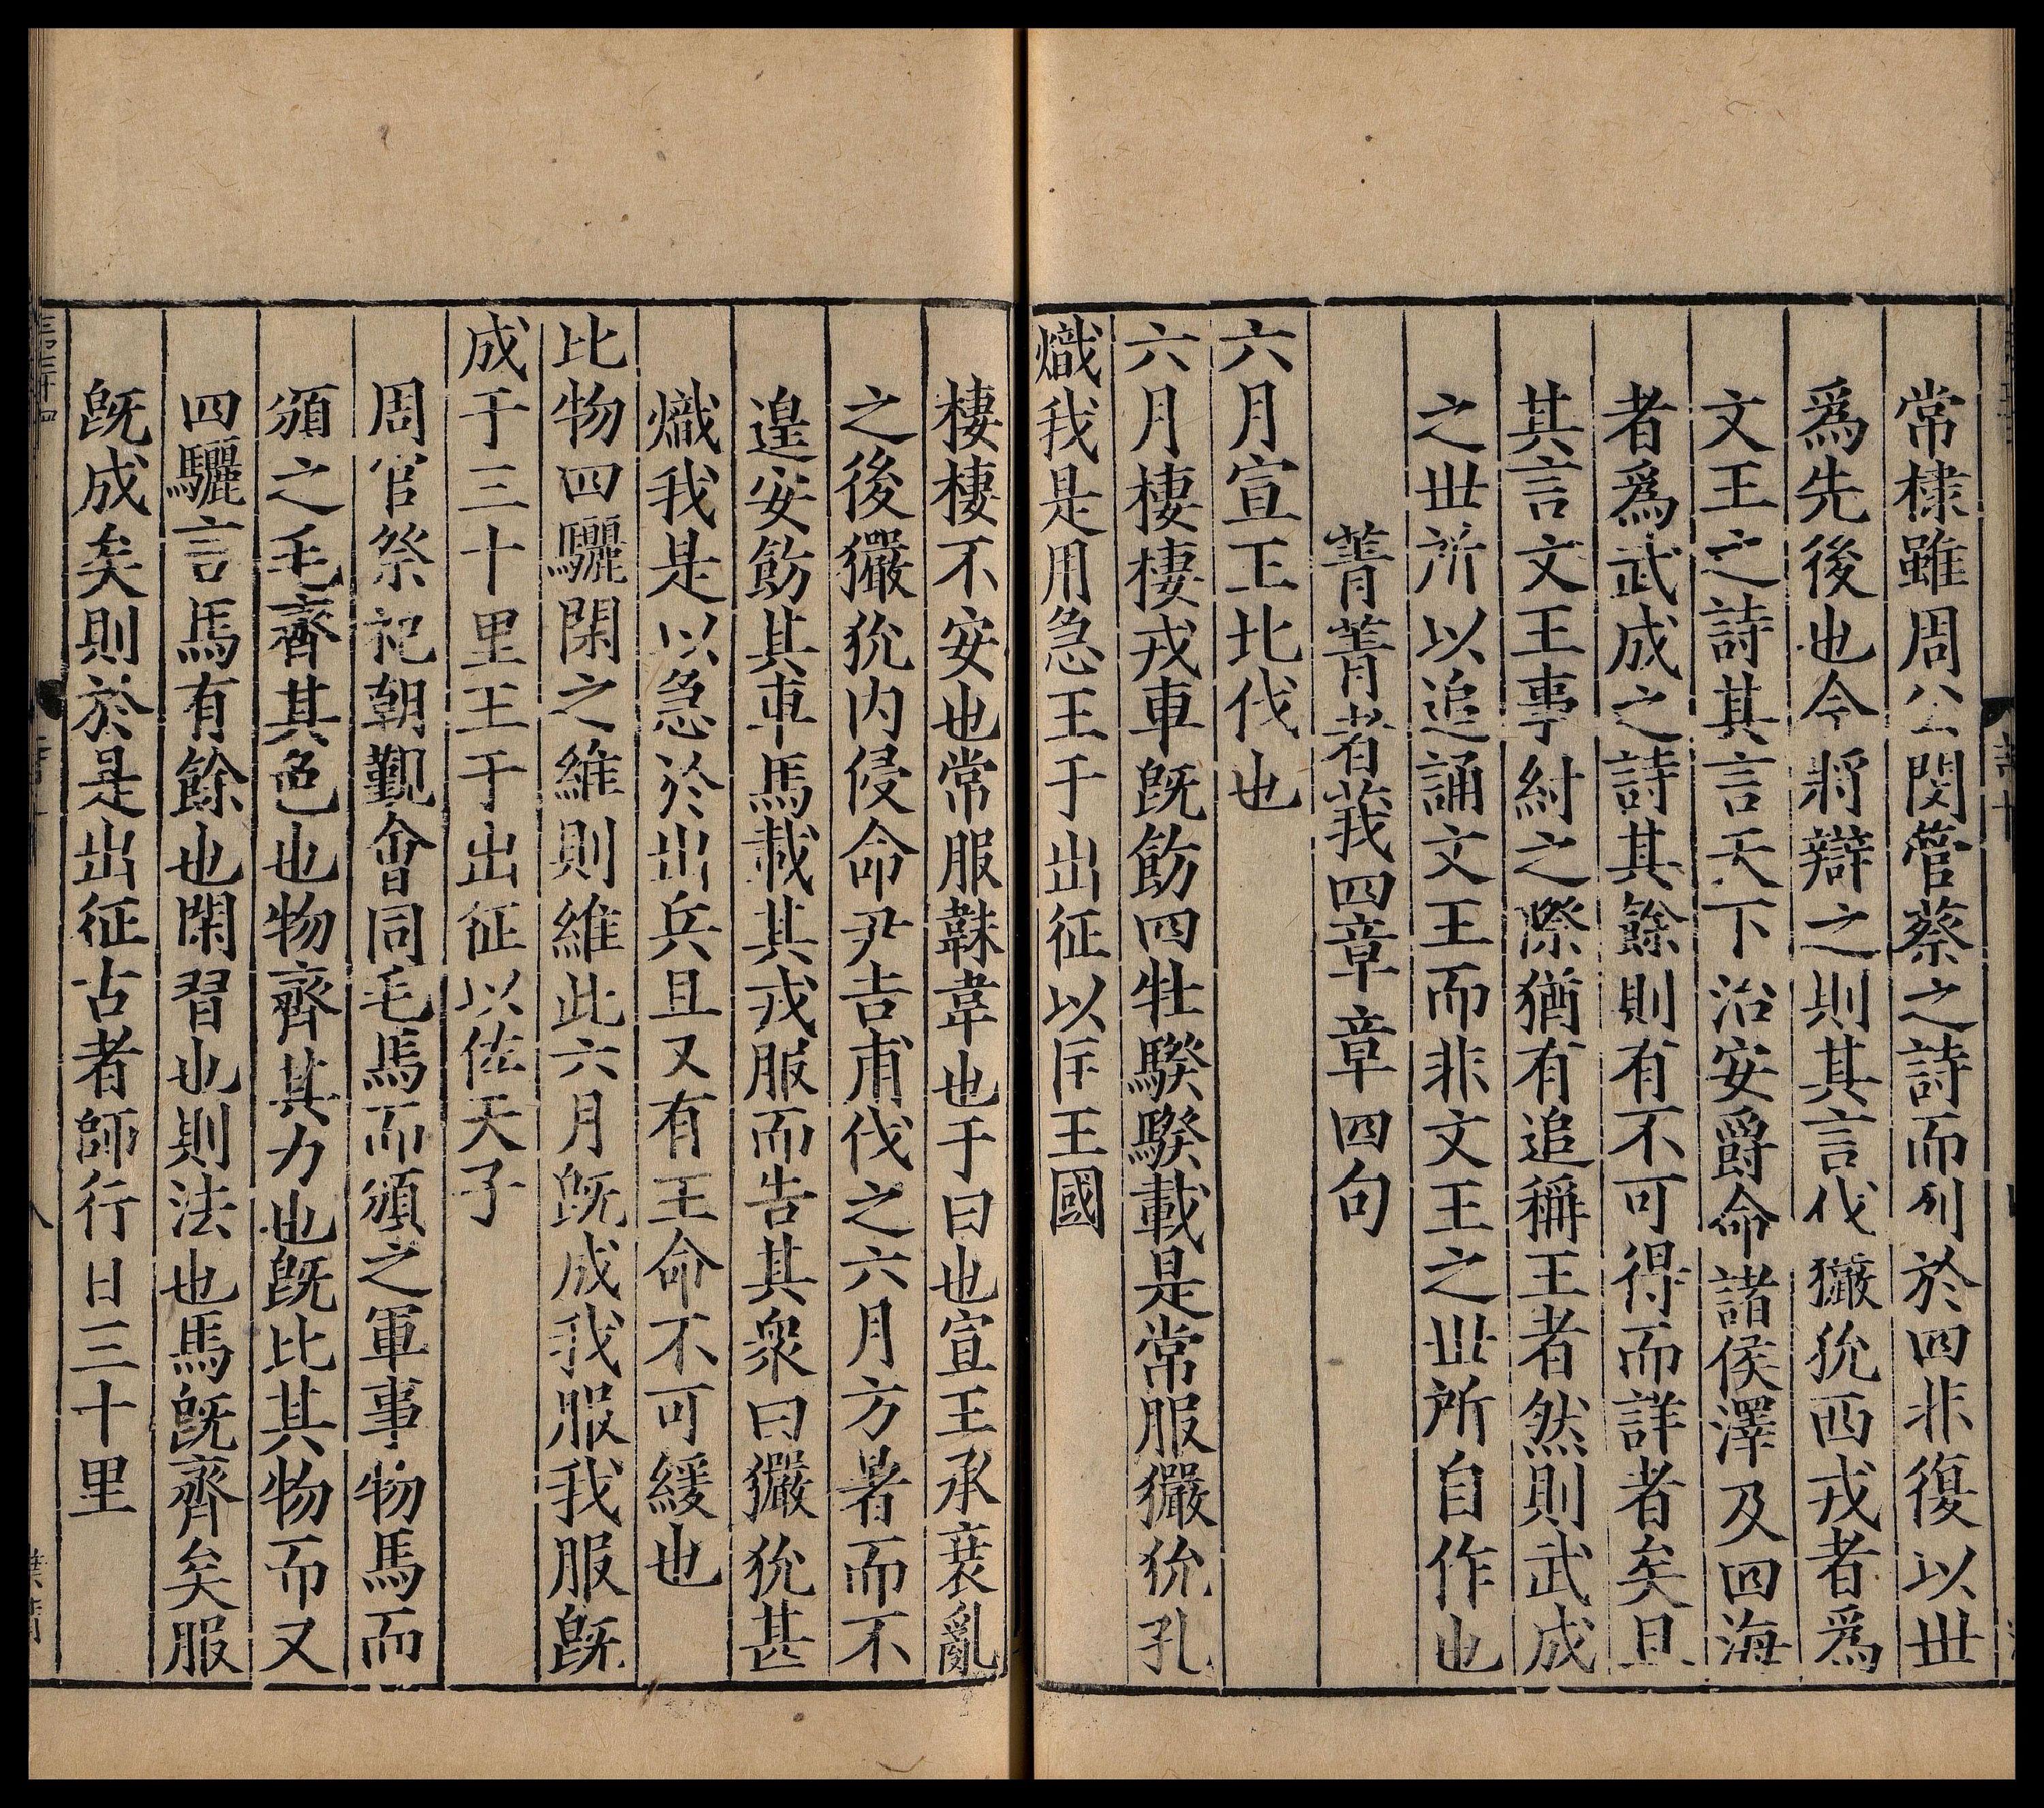 常棣雖周公閔管蔡之詩而列於四非復以世
爲先後也今將辯之則其言伐玁狁西戎者爲
文王之詩其言天下治安爵命諸侯澤及四海
者爲武成之詩其餘則有不可得而詳者矣且
其言文王事紂之際猶有追稱王者然則武成
之世所以追誦文王而非文王之世所自作也
菁菁者莪四章章四句
六月宣王北伐也
六月棲棲戎車旣飭四牡騤騤載是常服玁狁孔
熾我是用急王于出征以匡王國
棲棲不安也常服韎韋也于曰也宣王承衰亂
之後玁狁内侵命尹吉甫伐之六月方暑而不
遑安飭其車馬載其戎服而告其衆曰玁狁甚
熾我是以急於出兵且又有王命不可緩也
比物四驪閑之維則維此六月旣成我服我服旣
成于三十里王于出征以佐天子
周官祭祀朝覲會同毛馬而頒之軍事物馬而
頒之毛齊其色也物齊其力也旣比其物而又
四驪言馬有餘也閑習也則法也馬旣齊矣服
旣成矣則於是出征古者師行日三十里